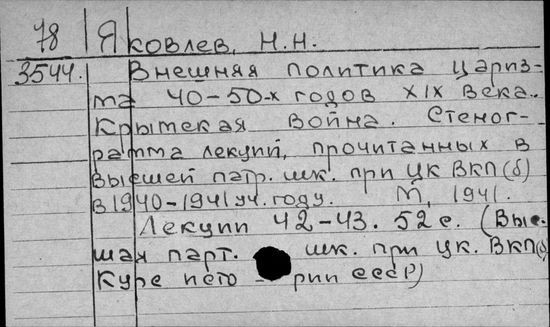 78 Яковлев, Н.Н.
3544. Внешняя политика цариз-
ма 40-50-х годов XIX века.
Крымская война. Стеног-
рамма лекций, прочитанных в
высшей парт. шк. при ЦК ВКП(б)
в 1940-1941 уч. году. М, 1941.
Лекции 42-43. 52 с. (Выс-
шая парт. шк. при ЦК. ВКП(б)
Курс исто - рии СССР)